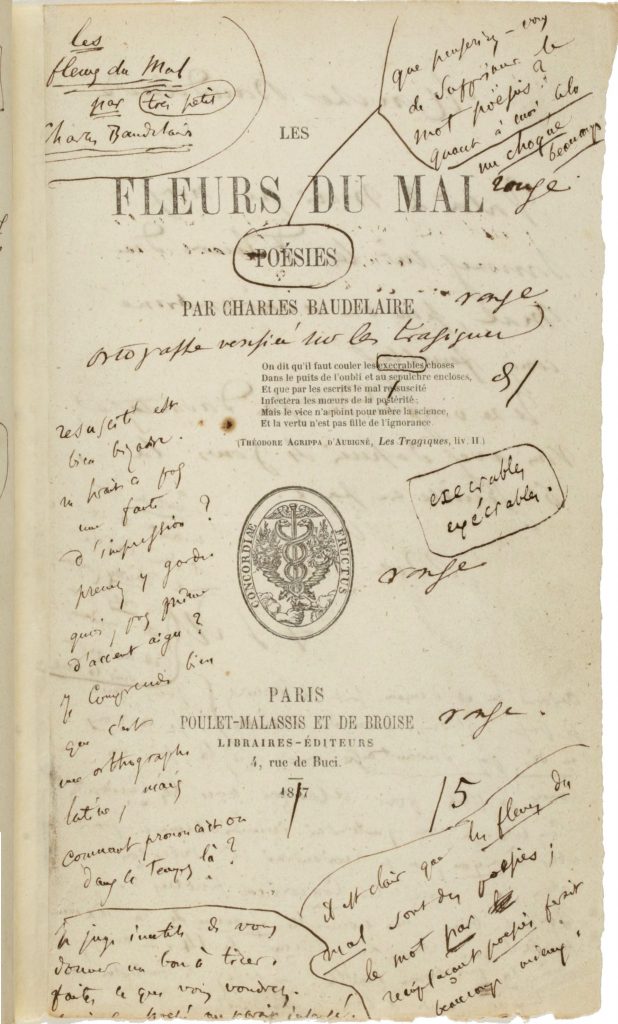 les
fleurs du Mal
par très petit
Charles Baudelaire
que penseriez-vous
de supprimer le
mot poësies ?
quant à moi cela
me choque
beaucoup
LES
FLEURS DU MAL
rouge.
POÉSIES
PAR CHARLES BAUDELAIRE
rouge
ortografe sur les tragiques
On dit qu'il faut couler les execrables choses
Dans le puits de l'oubli et au sepulchre encloses,
Et que par les escrits le mal resuscité
Infectera les mœurs de la postérité ;
Mais le vice n'a point pour mère la science,
Et la vertu n'est pas fille de l'ignorance.
(THÉODORE AGRIPPA D'AUBIGNÉ, Les Tragiques, liv. II)
resuscité est
bien bizarre.
une faute
d'impression ?
prenez y garde.
quoi, pas même
d'accent aigu ?
Je comprends bien
que c'est
une orthographe
latine, mais
comment prononçait on
dans le temps là ?
execrables
exécrables.
CONCORDIÆ FRUCTUS
rouge
PARIS
POULET-MALASSIS ET DE BROISE
LIBRAIRES-ÉDITEURS
4, rue de Buci.
rouge.
1857
/5
il est clair que les fleurs du
mal sont des poësies ;
le mot par
remplaçant poësies ferait
beaucoup mieux.
Je juge inutile de vous
donner un bon à tirer.
faites ce que vous voudrez.